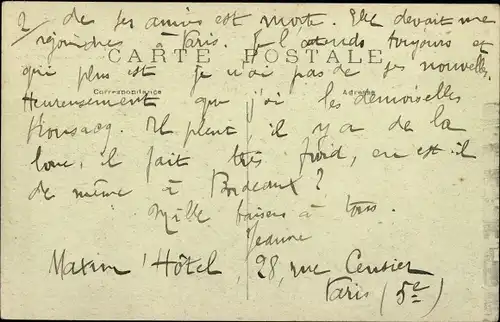 2/ de ses amies est morte. Elle devait me
rejoindre à Paris. Je l'attends toujours et
CARTE POSTALE
qui plus est je n'ai pas de ses nouvelles.
Correspondance Adresse
Heureusement que j'ai les demoiselles
Il pleut, il y a de la
boue, il fait très froid, en est-il
de même à Bordeaux ?
Mille baisers à tous.
Jeanne
Maxim' Hôtel, 28, rue Censier
Paris (5e)